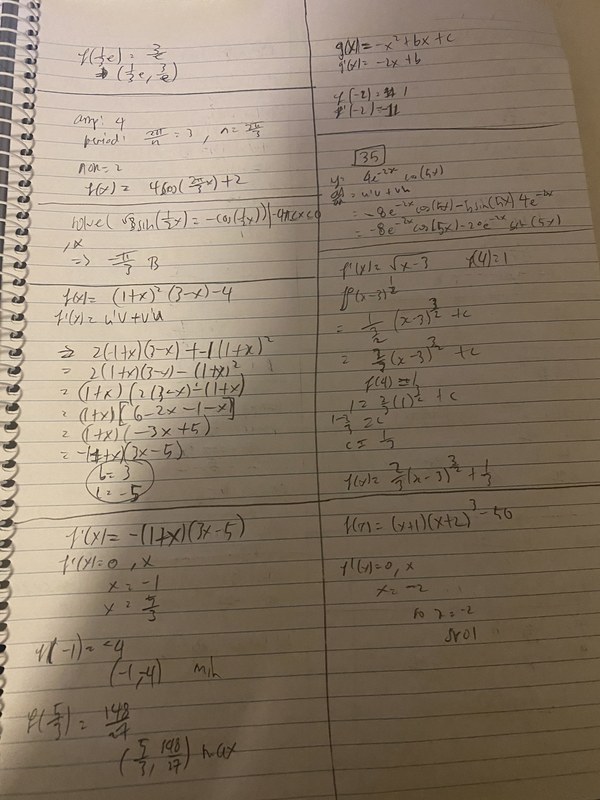 f(1/3 e) = 3/e
(1/3 e, 3/e)
amp: 4
period: 2π/n = 3, n = 2π/3
f(x) = 4cos(2π/3 x) + 2
solve(√3 sin(1/3 x) = -cos(1/3 x)) | -4π<x<0
,x
=> -π/3 B
f(x) = (1+x)² (3-x) - 4
f'(x) = u'v + v'u
=> 2(1+x)(3-x) + -1(1+x)²
= 2(1+x)(3-x) - (1+x)²
= (1+x)(2(3-x) - (1+x)
= (1+x)[6-2x-1-x]
= (1+x)(-3x+5)
= -(1+x)(3x-5)
b = 3
c = -5
f'(x) = -(1+x)(3x-5)
f'(x) = 0, x
x = -1
x = 5/3
f(-1) = -4
(-1, -4) min
f(5/3) = 148/27
(5/3, 148/27) max
g(x) = -x² + bx + c
g'(x) = -2x + b
35
y = 4e^-2x cos(5x)
dy/dx = u'v + v'u
= -8e^-2x cos(5x) - 5sin(5x) 4e^-2x
= -8e^-2x cos(5x) - 20e^-2x sin(5x)
f'(x) = √x-3 f(4) = 1
(x-3)^1/2
= 1/(3/2) (x-3)^3/2 + c
= 2/3 (x-3)^3/2 + c
f(4) = 1
1 = 2/3 (1)^3/2 + c
c = 1/3
f(x) = 2/3 (x-3)^3/2 + 1/3
f(x) = (x+1)(x+2)³ - 50
f'(x) = 0, x
x = -2
so x = -2